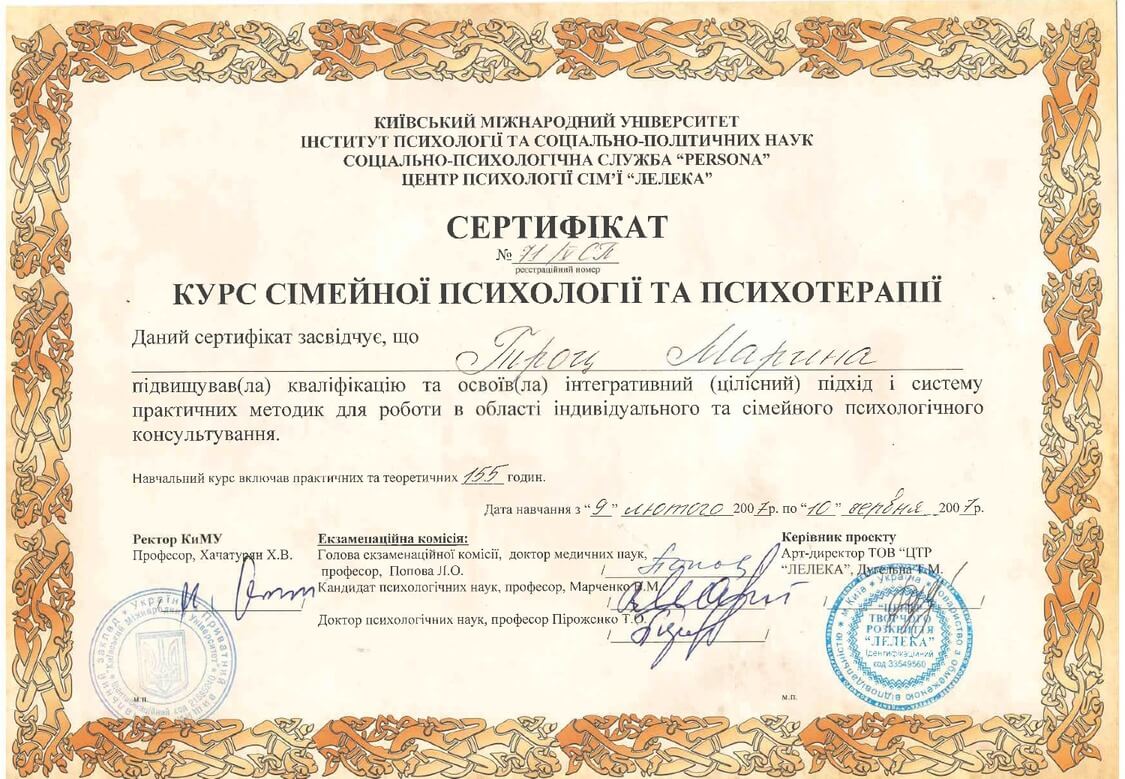 КИЇВСЬКИЙ МІЖНАРОДНИЙ УНІВЕРСИТЕТ
ІНСТИТУТ ПСИХОЛОГІЇ ТА СОЦІАЛЬНО-ПОЛІТИЧНИХ НАУК
СОЦІАЛЬНО-ПСИХОЛОГІЧНА СЛУЖБА “PERSONA”
ЦЕНТР ПСИХОЛОГІЇ СІМ’Ї “ЛЕЛЕКА”
СЕРТИФІКАТ
№ 71/ІV СП
реєстраційний номер
КУРС СІМЕЙНОЇ ПСИХОЛОГІЇ ТА ПСИХОТЕРАПІЇ
Даний сертифікат засвідчує, що
Марина
підвищував(ла) кваліфікацію та освоїв(ла) інтегративний (цілісний) підхід і систему
практичних методик для роботи в області індивідуального та сімейного психологічного
консультування.
Навчальний курс включав практичних та теоретичних 155 годин.
Дата навчання з “9” лютого 2007р. по “10” червня 2007р.
Ректор КиМУ
Професор, Хачатурян Х.В.
Екзаменаційна комісія:
Голова екзаменаційної комісії, доктор медичних наук,
професор, Попова Л.О.
Кандидат психологічних наук, професор, Марченко В.М.
Доктор психологічних наук, професор Пірожєнко Т.О.
Керівник проекту
Арт-директор ТОВ “ЦТР
“ЛЕЛЕКА”, Дугельна Т.М.
м.п.
м.п.
Україна * Товариство з обмеженою відповідальністю * м. Київ
ТВОРЧОГО
РОЗВИТТЯ
“ЛЕЛЕКА”
Ідентифікаційний
код 33549560